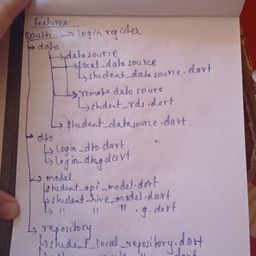 features
auth → login register
→ data
→ datasource
→ local_data source
↳ student_data source.dart
→ remote data soure
↳ student_rds.dart
↳ student_datasource.dart
→ dto
↳ login_dto.dart
↳ login_dto.g.dart
→ model
student_api_model.dart
↳ student_hive_model.dart
↳ " " " .g.dart
↳ repository
↳ student_local_repository.dart